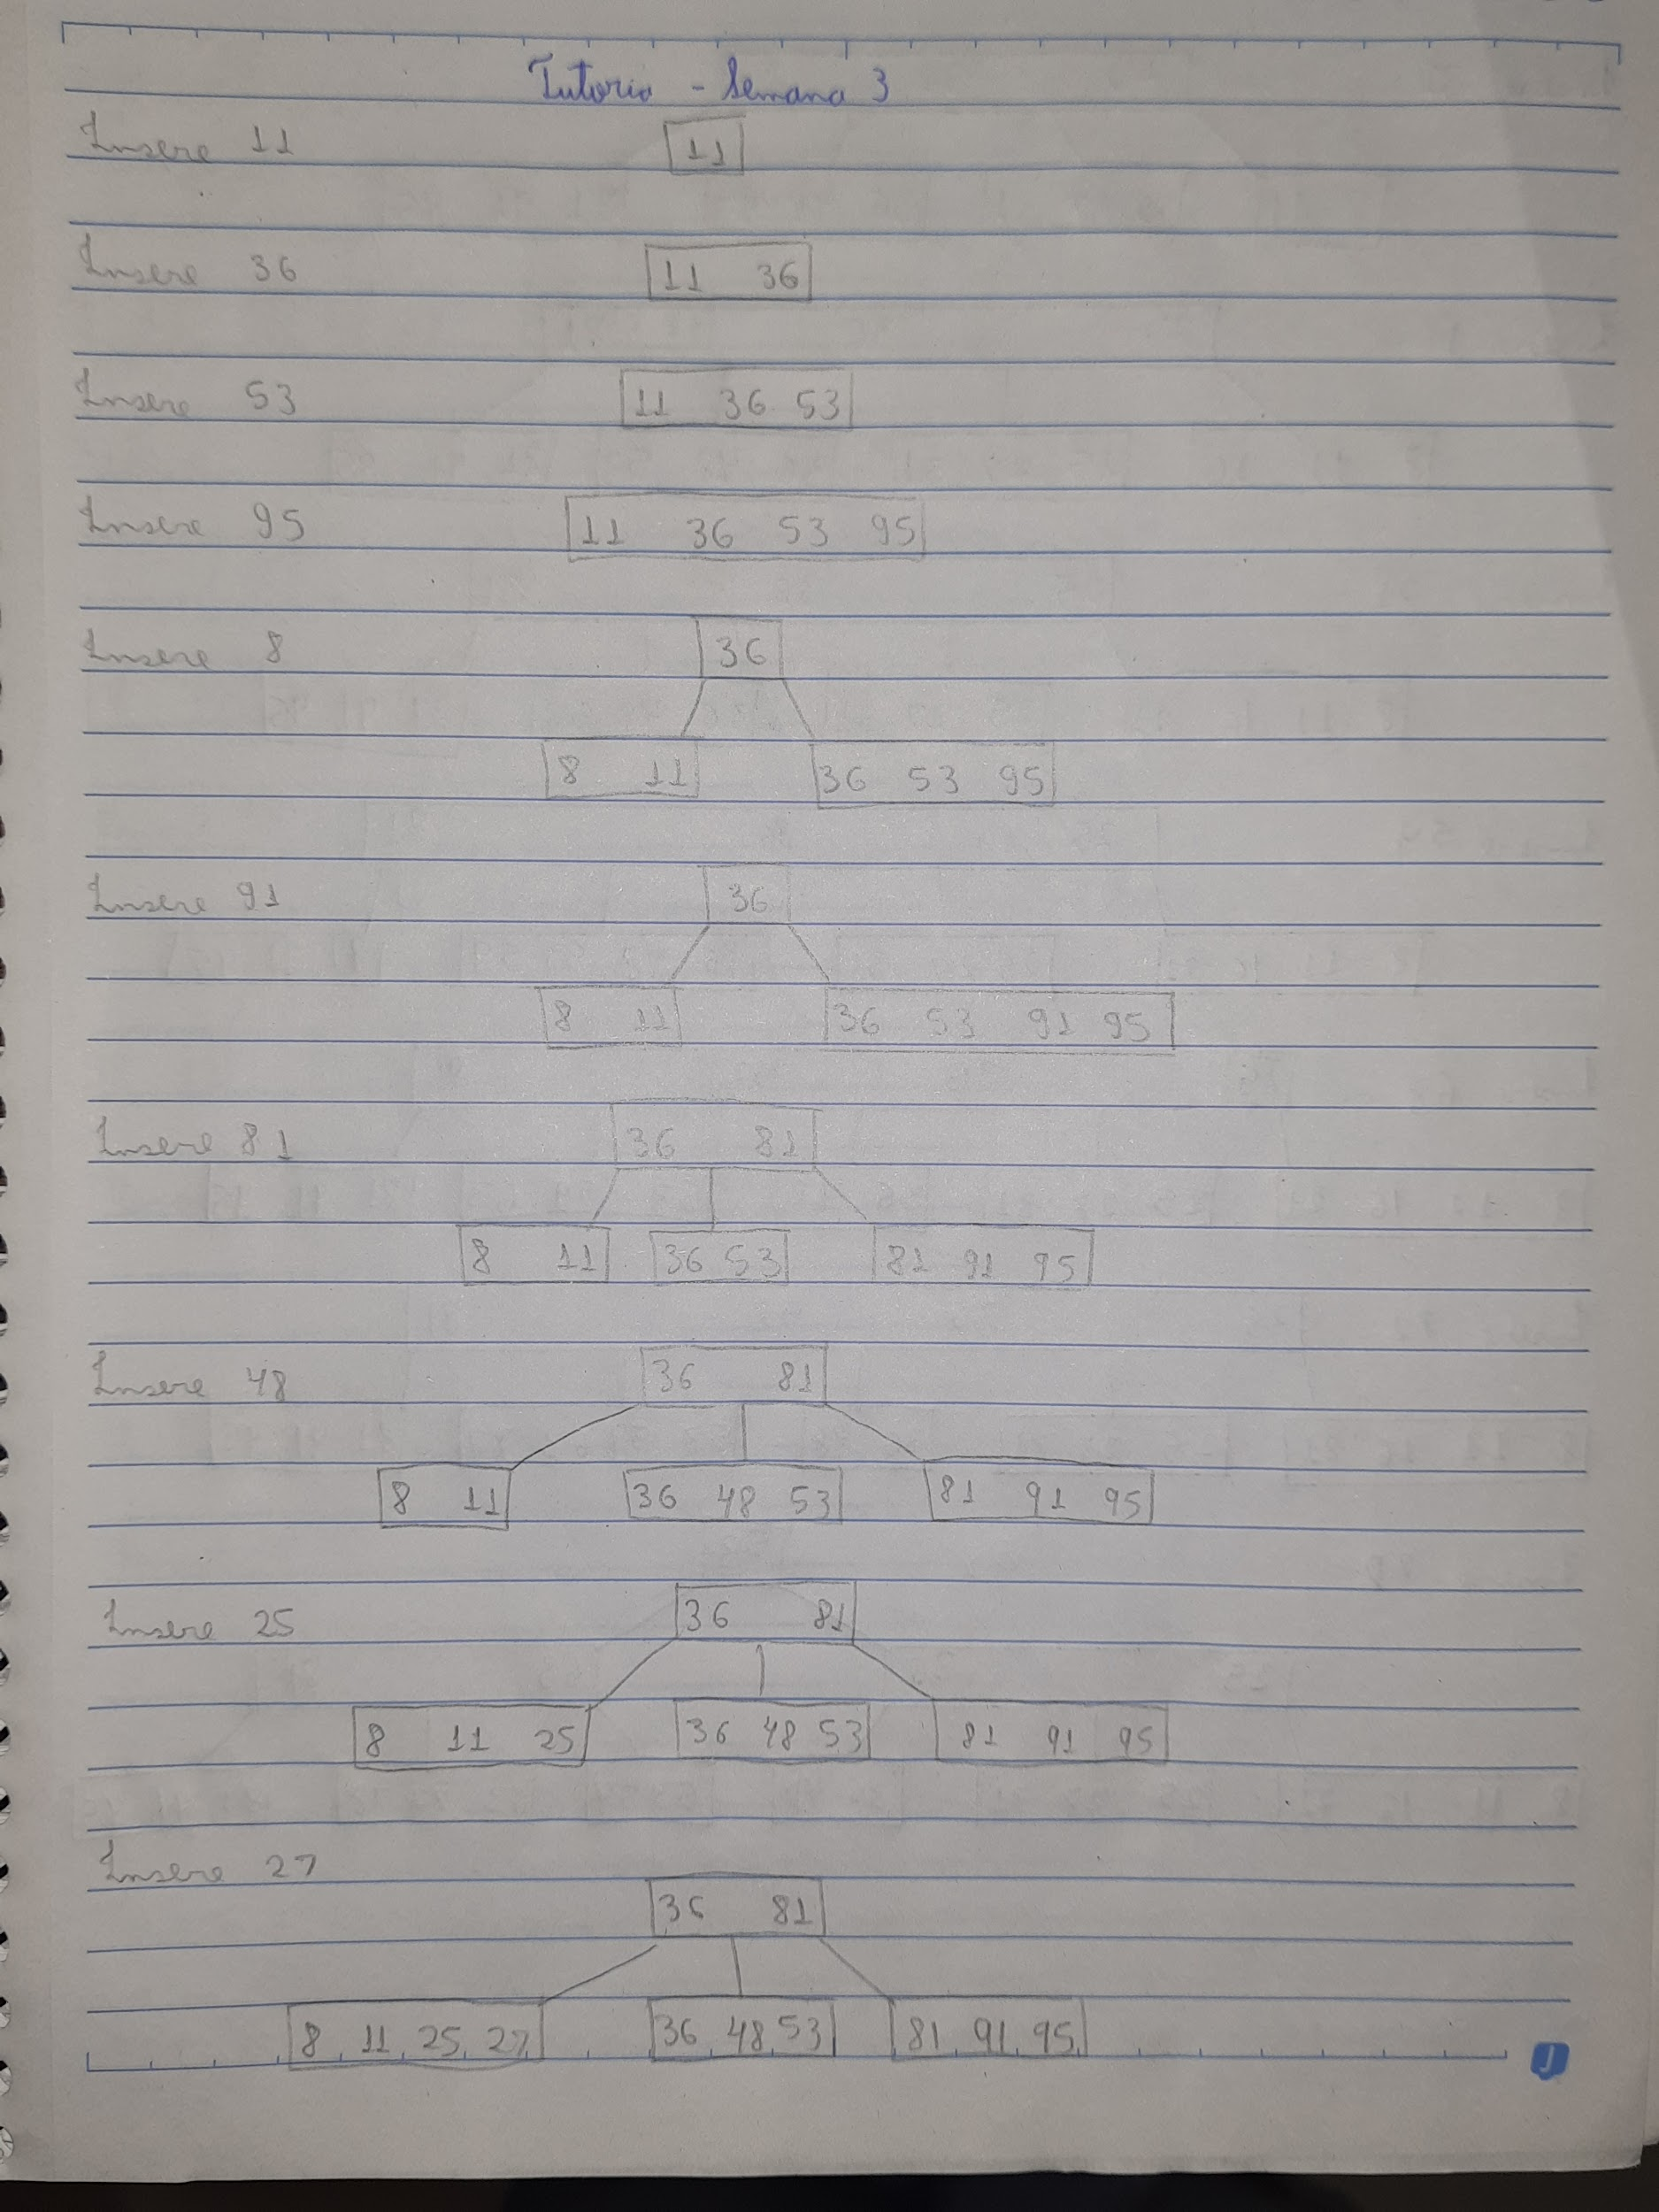 Tutoria - Semana 3
Insere 11 11
Insere 36 11 36
Insere 53 11 36 53
Insere 95 11 36 53 95
Insere 8 36
8 11 36 53 95
Insere 91 36
8 11 36 53 91 95
Insere 81 36 81
8 11 36 53 81 91 95
Insere 48 36 81
8 11 36 48 53 81 91 95
Insere 25 36 81
8 11 25 36 48 53 81 91 95
Insere 27
36 81
8 11 25 27 36 48 53 81 91 95
J